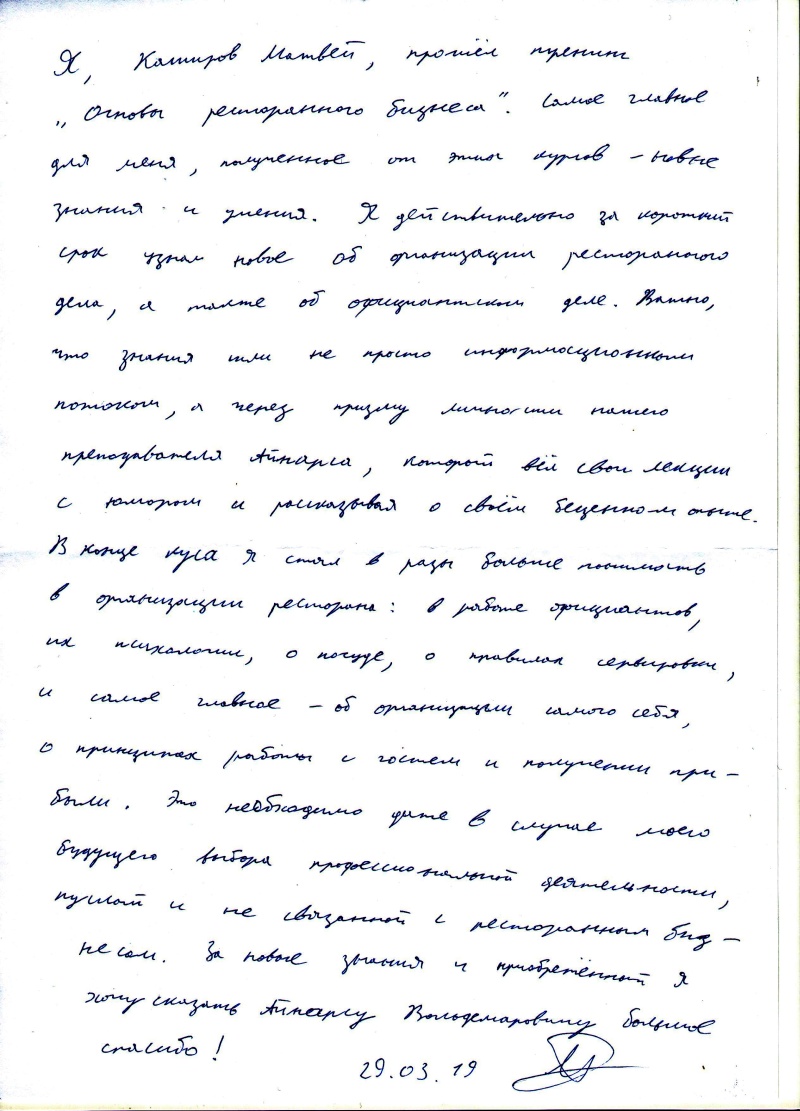 Я, Каширов Матвей, прошёл тренинг
„Основы ресторанного бизнеса“. Самое главное
для меня, полученное от этих курсов – новые
знания и умения. Я действительно за короткий
срок узнал новое об организации ресторанного
дела, а также об официантском деле. Важно,
что знания шли не просто информационным
потоком, а через призму личности нашего
преподавателя Айнарса, который вёл свои лекции
с юмором и рассказывая о своём бесценном опыте.
В конце курса я стал в разы больше понимать
в организации ресторана: в работе официантов,
их психологии, о посуде, о правилах сервировки,
и самое главное – об организации самого себя,
о принципах работы с гостем и получении при-
были. Это необходимо даже в случае моего
будущего выбора профессиональной деятельности,
пускай и не связанной с ресторанным биз-
несом. За новые знания и приобретённый я
хочу сказать Айнарсу Вольдемаровичу большое
спасибо!
29.03.19